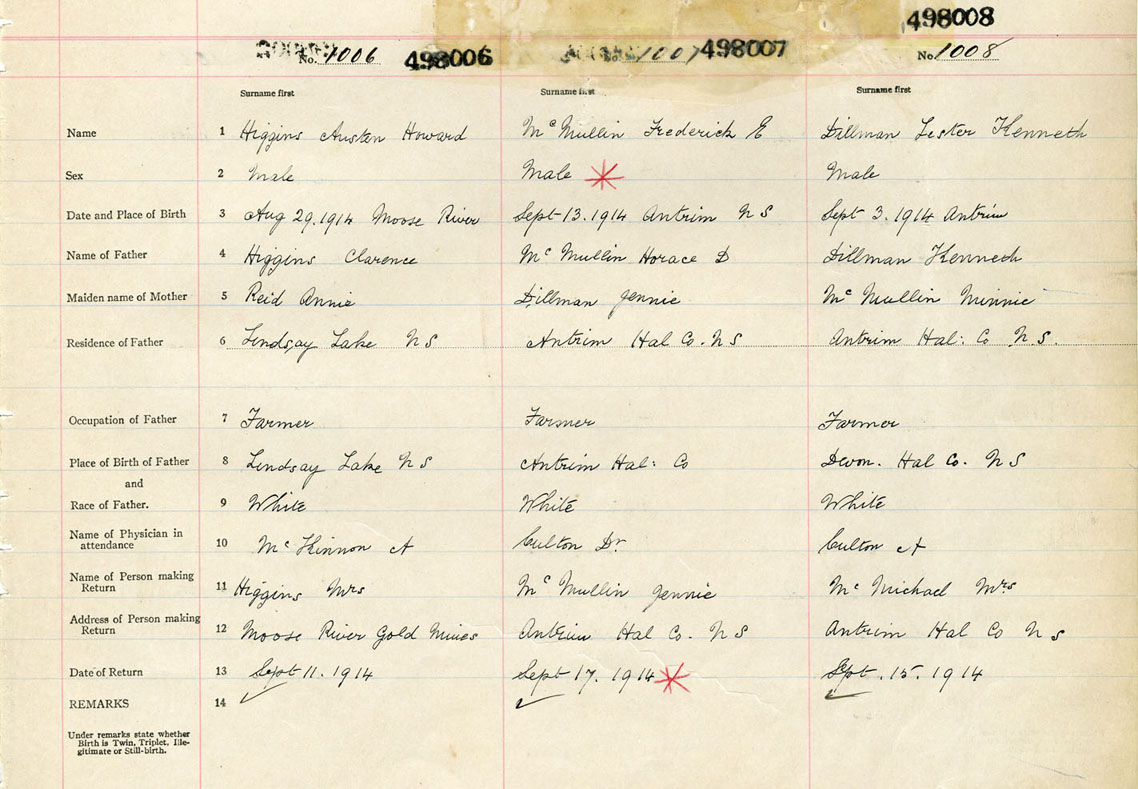 498008
No. 1006 498006 1007 498007 No. 1008
Surname first Surname first Surname first
Name 1 Higgins Austen Howard Mc Mullin Frederick E Dillman Lester Kenneth
Sex 2 Male Male Male
Date and Place of Birth 3 Aug 29. 1914 Moose River Sept 13. 1914 Antrim N S Sept 3. 1914 Antrim
Name of Father 4 Higgins Clarence Mc Mullin Horace D Dillman Kenneth
Maiden name of Mother 5 Reid Annie Dillman Jennie Mc Mullin Minnie
Residence of Father 6 Lindsay Lake N S Antrim Hal Co. N S Antrim Hal: Co N. S.
Occupation of Father 7 Farmer Farmer Farmer
Place of Birth of Father 8 Lindsay Lake N S Antrim Hal: Co Devon. Hal Co. N S
and
Race of Father. 9 White White White
Name of Physician in
attendance 10 Mc Kinnon A Culton Dr Culton A
Name of Person making
Return 11 Higgins Mrs Mc Mullin Jennie Mc Michael Mrs
Address of Person making
Return 12 Moose River Gold Mines Antrim Hal Co. N S Antrim Hal Co N S
Date of Return 13 Sept 11. 1914 Sept 17. 1914 Spt. 15. 1914
REMARKS 14
Under remarks state whether
Birth is Twin, Triplet, Ille-
gitimate or Still-birth.